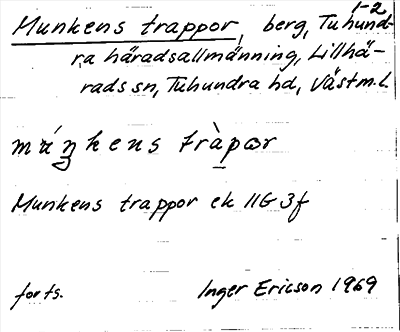 1-2
Munkens trappor, berg, Tuhund-
ra häradsallmänning, Lillhä-
rads sn, Tuhundra hd, Västm.l.
múŋkens tràpωr
Munkens trappor ek 11G 3f
forts. Inger Ericson 1969